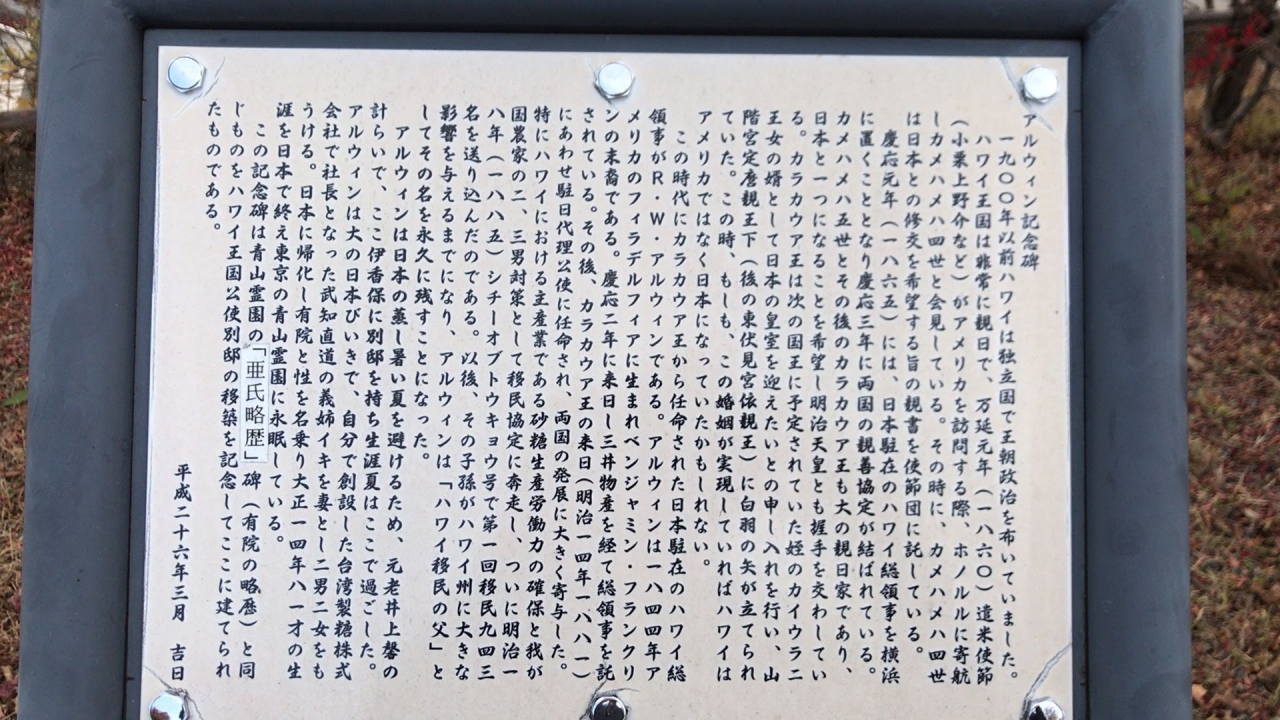 アルウィン記念碑
一九〇〇年以前ハワイは独立国で王朝政治を布いていました。
ハワイ王国は非常に親日で、万延元年（一八六〇）遣米使節
（小栗上野介など）がアメリカを訪問する際、ホノルルに寄航
しカメハメハ四世と会見している。その時に、カメハメハ四世
は日本との修交を希望する旨の親書を使節団に託している。
慶応元年（一八六五）には、日本駐在のハワイ総領事を横浜
に置くこととなり慶応三年に両国の親善協定が結ばれている。
カメハメハ五世とその後のカラカウア王も大の親日家であり、
日本と一つになることを希望し明治天皇とも握手を交わしてい
る。カラカウア王は次の国王に予定されていた姪のカイウラニ
王女の婿として日本の皇室を迎えたいとの申し入れを行い、山
階宮定麿親王下（後の東伏見宮依親王）に白羽の矢が立てられ
ていた。この時、もしも、この婚姻が実現していればハワイは
アメリカではなく日本になっていたかもしれない。
この時代にカラカウア王から任命された日本駐在のハワイ総
領事がR・W・アルウィンである。アルウィンは一八四四年ア
メリカのフィラデルフィアに生まれベンジャミン・フランクリ
ンの末裔である。慶応二年に来日し三井物産を経て総領事を託
されている。その後、カラカウア王の来日（明治一四年一八八一）
にあわせ駐日代理公使に任命され、両国の発展に大きく寄与した。
特にハワイにおける主産業である砂糖生産労働力の確保と我が
国農家の二、三男対策として移民協定に奔走し、ついに明治一
八年（一八八五）シチーオブトウキョウ号で第一回移民九四三
名を送り込んだのである。以後、その子孫がハワイ州に大きな
影響を与えるまでになり、アルウィンは「ハワイ移民の父」と
してその名を永久に残すことになった。
アルウィンは日本の蒸し暑い夏を避けるため、元老井上馨の
計らいで、ここ伊香保に別邸を持ち生涯夏はここで過ごした。
アルウィンは大の日本びいきで、自分で創設した台湾製糖株式
会社で社長となった武知直道の義姉イキを妻とし二男二女をも
うける。日本に帰化し有院と性を名乗り大正一四年八一才の生
涯を日本で終え東京の青山霊園に永眠している。
この記念碑は青山霊園の「亜氏略歴」碑（有院の略歴）と同
じものをハワイ王国公使別邸の移築を記念してここに建てられ
たものである。
平成二十六年三月 吉日